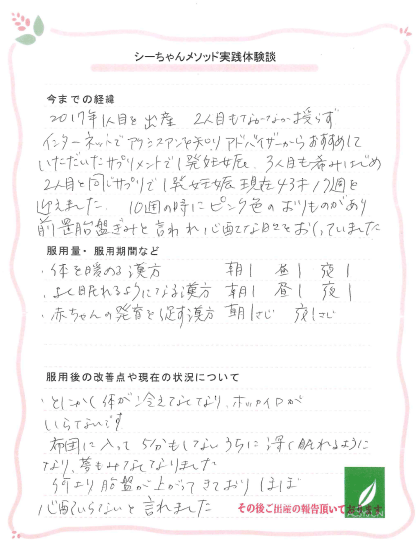 シーちゃんメソッド実践体験談
今までの経緯
2017年1人目を出産 2人目もなかなか授らず
インターネットでアクシスアンを知り アドバイザーからおすすめして
いただいたサプリメントで1発妊娠。3人目も希みはじめ
2人目と同じサプリで1発妊娠 現在43才17週を
迎えました。10週の時にピンク色のおりものがあり
前置胎盤ぎみと言われ心配な日々をおくっていました
服用量・服用期間など
・体を暖める漢方 朝1 昼1 夜1
・よく眠れるようになる漢方 朝1 昼1 夜1
・赤ちゃんの発育を促す漢方 朝1さじ 夜1さじ
服用後の改善点や現在の状況について
・とにかく体が冷えなくなり、ホッカイロが
いらないです
布団に入って5分もしないうちに深く眠れるように
なり、夢もみなくなりました
何より胎盤が上がってきており ほぼ
心配いらないと言れました
その後ご出産の報告頂いております